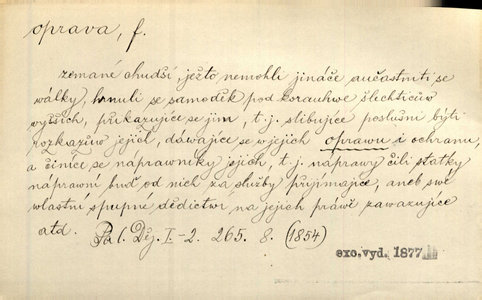 oprava, f.
zemané chudší, ježto nemohli jináče aučastniti se
wálky, hrnuli se samoděk pod korauhwe šlechticůw
wyšších, přikazujíce se jim, t. j. slibujíce poslušni býti
rozkazůw jejich, dáwajíce se w jejich oprawu i ochranu,
a činíce se náprawníky jejich, t. j. náprawy čili statky
náprawní buď od nich za služby přijímajíce, aneb swé
wlastní spupné dědictwí na jejich práwě zawazujíce
atd. Pal. Děj. I-2. 265. 8. (1854)
exc. vyd. 1877